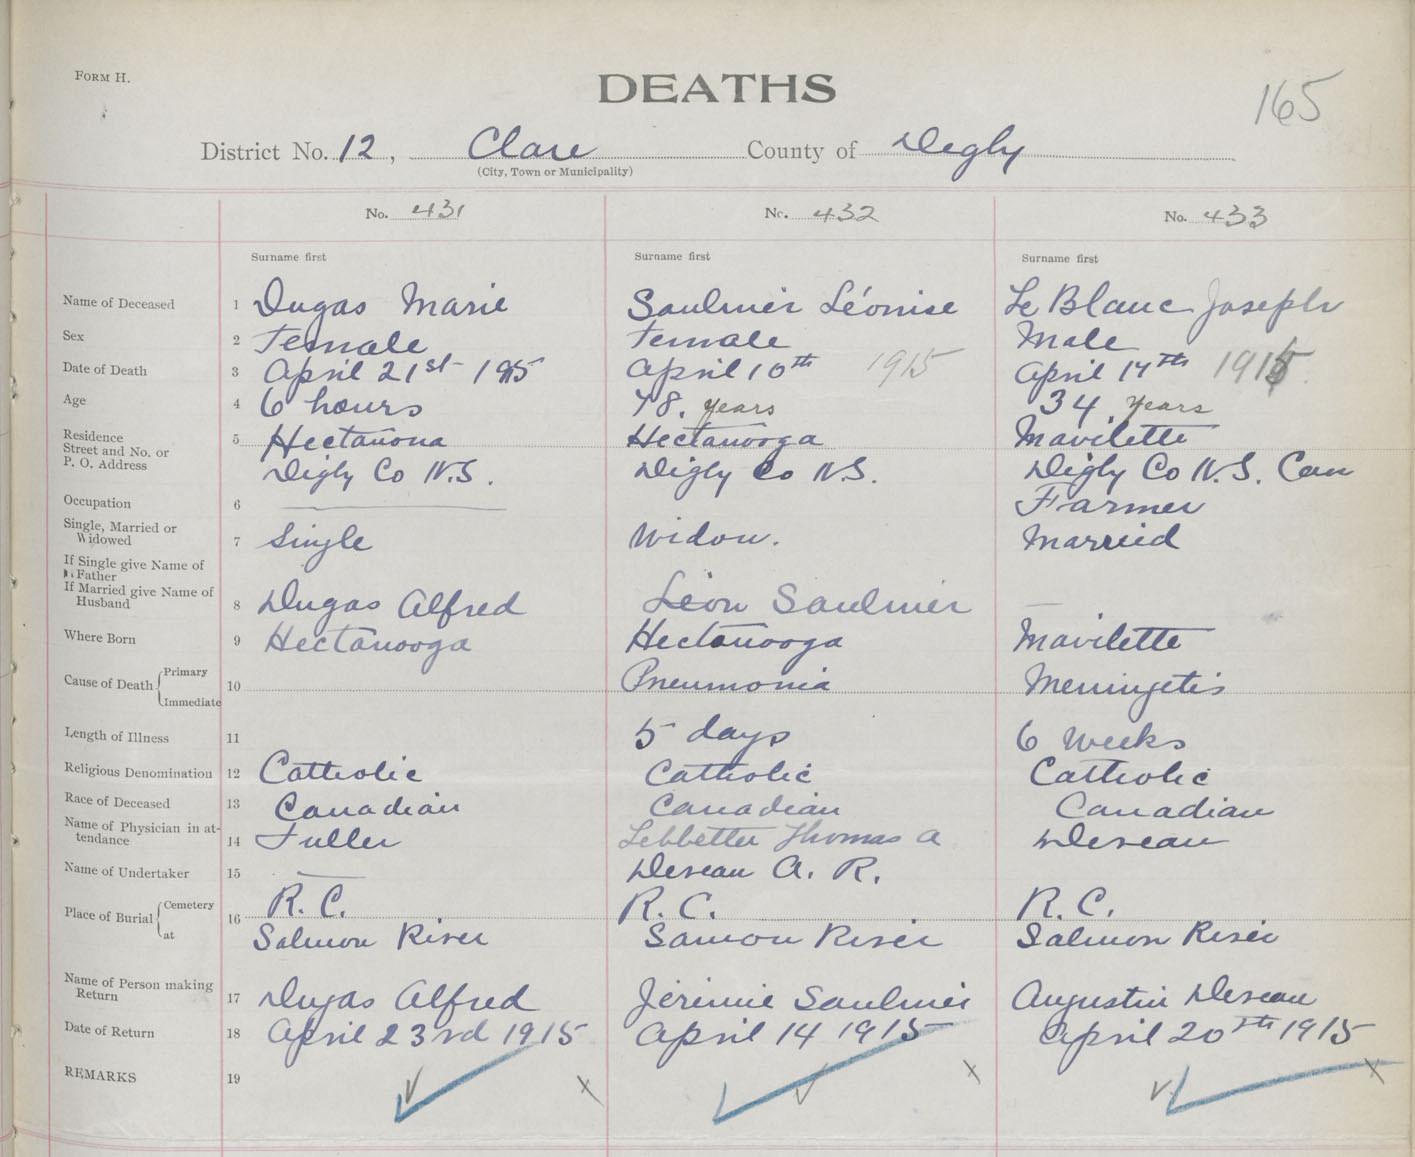 FORM H.
DEATHS
165
District No. 12, Clare County of Digby
(City, Town or Municipality)
No. 431 No. 432 No. 433
Surname first Surname first Surname first
Name of Deceased 1 Dugas Marie Saulnier Léonise Le Blanc Joseph
Sex 2 Female Female Male
Date of Death 3 April 21st 1915 April 10th 1915 April 14th 1915
Age 4 6 hours 78. years 34. years
Residence
Street and No. or
P. O. Address
5 Hectanona Hectanooga Mavilette
Digby Co N.S. Digby Co N.S. Digby Co N.S. Can
Occupation 6 Farmer
Single, Married or
Widowed
7 Single Widow. Married
If Single give Name of
Father
If Married give Name of
Husband
8 Dugas Alfred Léon Saulnier
Where Born 9 Hectanooga Hectanooga Mavilette
Cause of Death Primary
Immediate
10 Pneumonia Meningetis
Length of Illness 11 5 days 6 weeks
Religious Denomination 12 Catholic Catholic Catholic
Race of Deceased 13 Canadian Canadian Canadian
Name of Physician in at-
tendance
14 Fuller Lebbetter Thomas A Deveau
Name of Undertaker 15 Deveau A. R.
Place of Burial Cemetery
at
16 R. C. R. C. R. C.
Salmon River Samon River Salmon River
Name of Person making
Return
17 Dugas Alfred Jérimie Saulnier Augustin Deveau
Date of Return 18 April 23rd 1915 April 14 1915 April 20th 1915
REMARKS 19